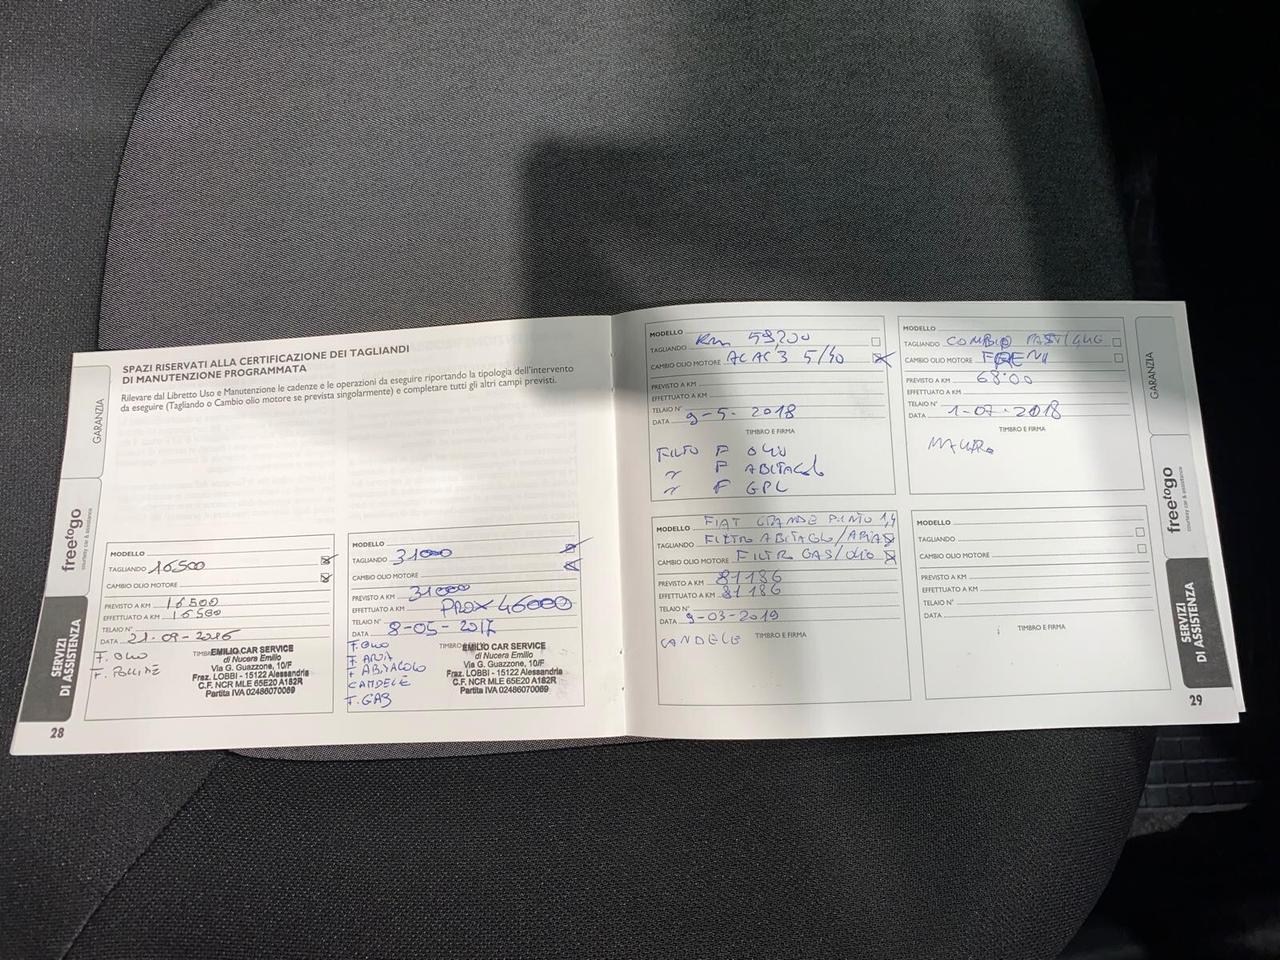 SPAZI RISERVATI ALLA CERTIFICAZIONE DEI TAGLIANDI
DI MANUTENZIONE PROGRAMMATA
Rilevare dal Libretto Uso e Manutenzione le cadenze e le operazioni da eseguire riportando la tipologia dell'intervento
da eseguire (Tagliando o Cambio olio motore se prevista singolarmente) e completare tutti gli altri campi previsti.
GARANZIA
freetogo
courtesy car & assistance
SERVIZI
DI ASSISTENZA
MODELLO
TAGLIANDO 16500
CAMBIO OLIO MOTORE
PREVISTO A KM 16500
EFFETTUATO A KM 16500
TELAIO N°
DATA 21-09-2016
TIMBRO
F. OLIO
EMILIO CAR SERVICE
di Nucera Emilio
Via G. Guazzone, 10/F
Fraz. LOBBI - 15122 Alessandria
C.F. NCR MLE 65E20 A182R
Partita IVA 02486070069
28
MODELLO
TAGLIANDO 31000
CAMBIO OLIO MOTORE
PREVISTO A KM 31000
EFFETTUATO A KM PROX 46000
TELAIO N°
DATA 8-05-2017
TIMBRO
F. OLIO
F. ARIA
F ABITACOLO
CANDELE
F. GAS
EMILIO CAR SERVICE
di Nucera Emilio
Via G. Guazzone, 10/F
Fraz. LOBBI - 15122 Alessandria
C.F. NCR MLE 65E20 A182R
Partita IVA 02486070069
MODELLO
TAGLIANDO Km 59200
CAMBIO OLIO MOTORE ACAC3 5/40
PREVISTO A KM
EFFETTUATO A KM
TELAIO N°
DATA 9-5-2018
TIMBRO E FIRMA
FILTO F OLIO
F ABITACOLO
F GPL
MODELLO
TAGLIANDO
CAMBIO OLIO MOTORE FRENI
PREVISTO A KM
EFFETTUATO A KM
TELAIO N°
DATA 1-07-2018
TIMBRO E FIRMA
MODELLO FIAT GRANDE PUNTO 1,4
TAGLIANDO FILTRO ABITACLO/ARIA
CAMBIO OLIO MOTORE FILTRO GAS/OLIO
PREVISTO A KM 81186
EFFETTUATO A KM 81186
TELAIO N°
DATA 9-03-2019
TIMBRO E FIRMA
CANDELE
MODELLO
TAGLIANDO
CAMBIO OLIO MOTORE
PREVISTO A KM
EFFETTUATO A KM
TELAIO N°
DATA
TIMBRO E FIRMA
GARANZIA
freetogo
courtesy car & assistance
SERVIZI
DI ASSISTENZA
29